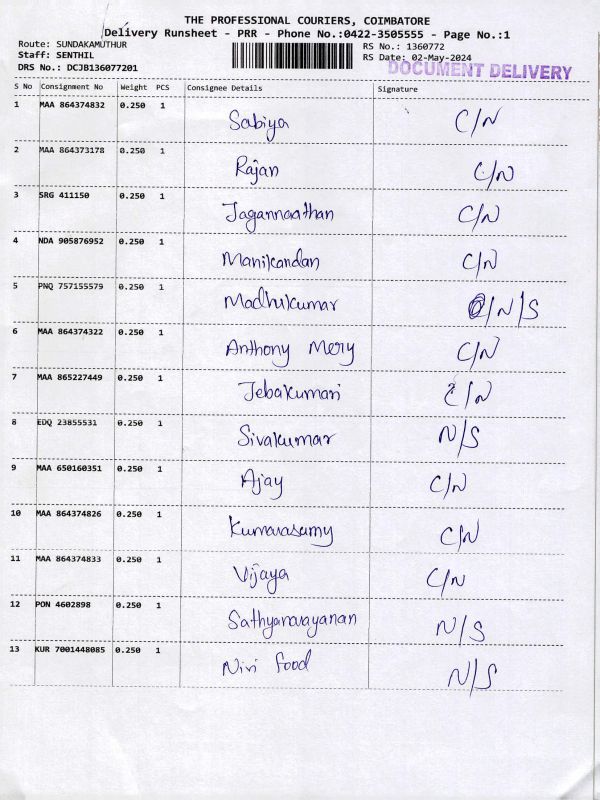 THE PROFESSIONAL COURIERS, COIMBATORE
Delivery Runsheet - PRR - Phone No.:0422-3505555 - Page No.:1
Route: SUNDAKAMUTHUR RS No.: 1360772
Staff: SENTHIL RS Date: 02-May-2024
DRS No.: DCJB136077201 DOCUMENT DELIVERY
S No Consignment No Weight PCS Consignee Details Signature
1 MAA 864374832 0.250 1 Sabiya C/N
2 MAA 864373178 0.250 1 Rajan C/N
3 SRG 411150 0.250 1 Jagannaathan C/N
4 NDA 905876952 0.250 1 Manikandan C/N
5 PNQ 757155579 0.250 1 Madhukumar /N/S
6 MAA 864374322 0.250 1 Anthony Mery C/N
7 MAA 865227449 0.250 1 Jebakumari C/N
8 EDQ 23855531 0.250 1 Sivakumar N/S
9 MAA 650160351 0.250 1 Ajay C/N
10 MAA 864374826 0.250 1 Kumarasamy C/N
11 MAA 864374833 0.250 1 Vijaya C/N
12 PON 4602898 0.250 1 Sathyanarayanan N/S
13 KUR 7001448085 0.250 1 Nivi food N/S